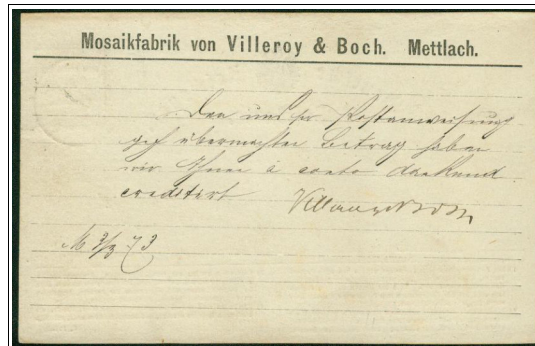 Mosaikfabrik von Villeroy & Boch. Mettlach.
Den uns per Postanweisung
gefl übermachten Betrag haben
wir Ihnen à conto dankend
creditirt Villeroy & Boch
M 3/3 73